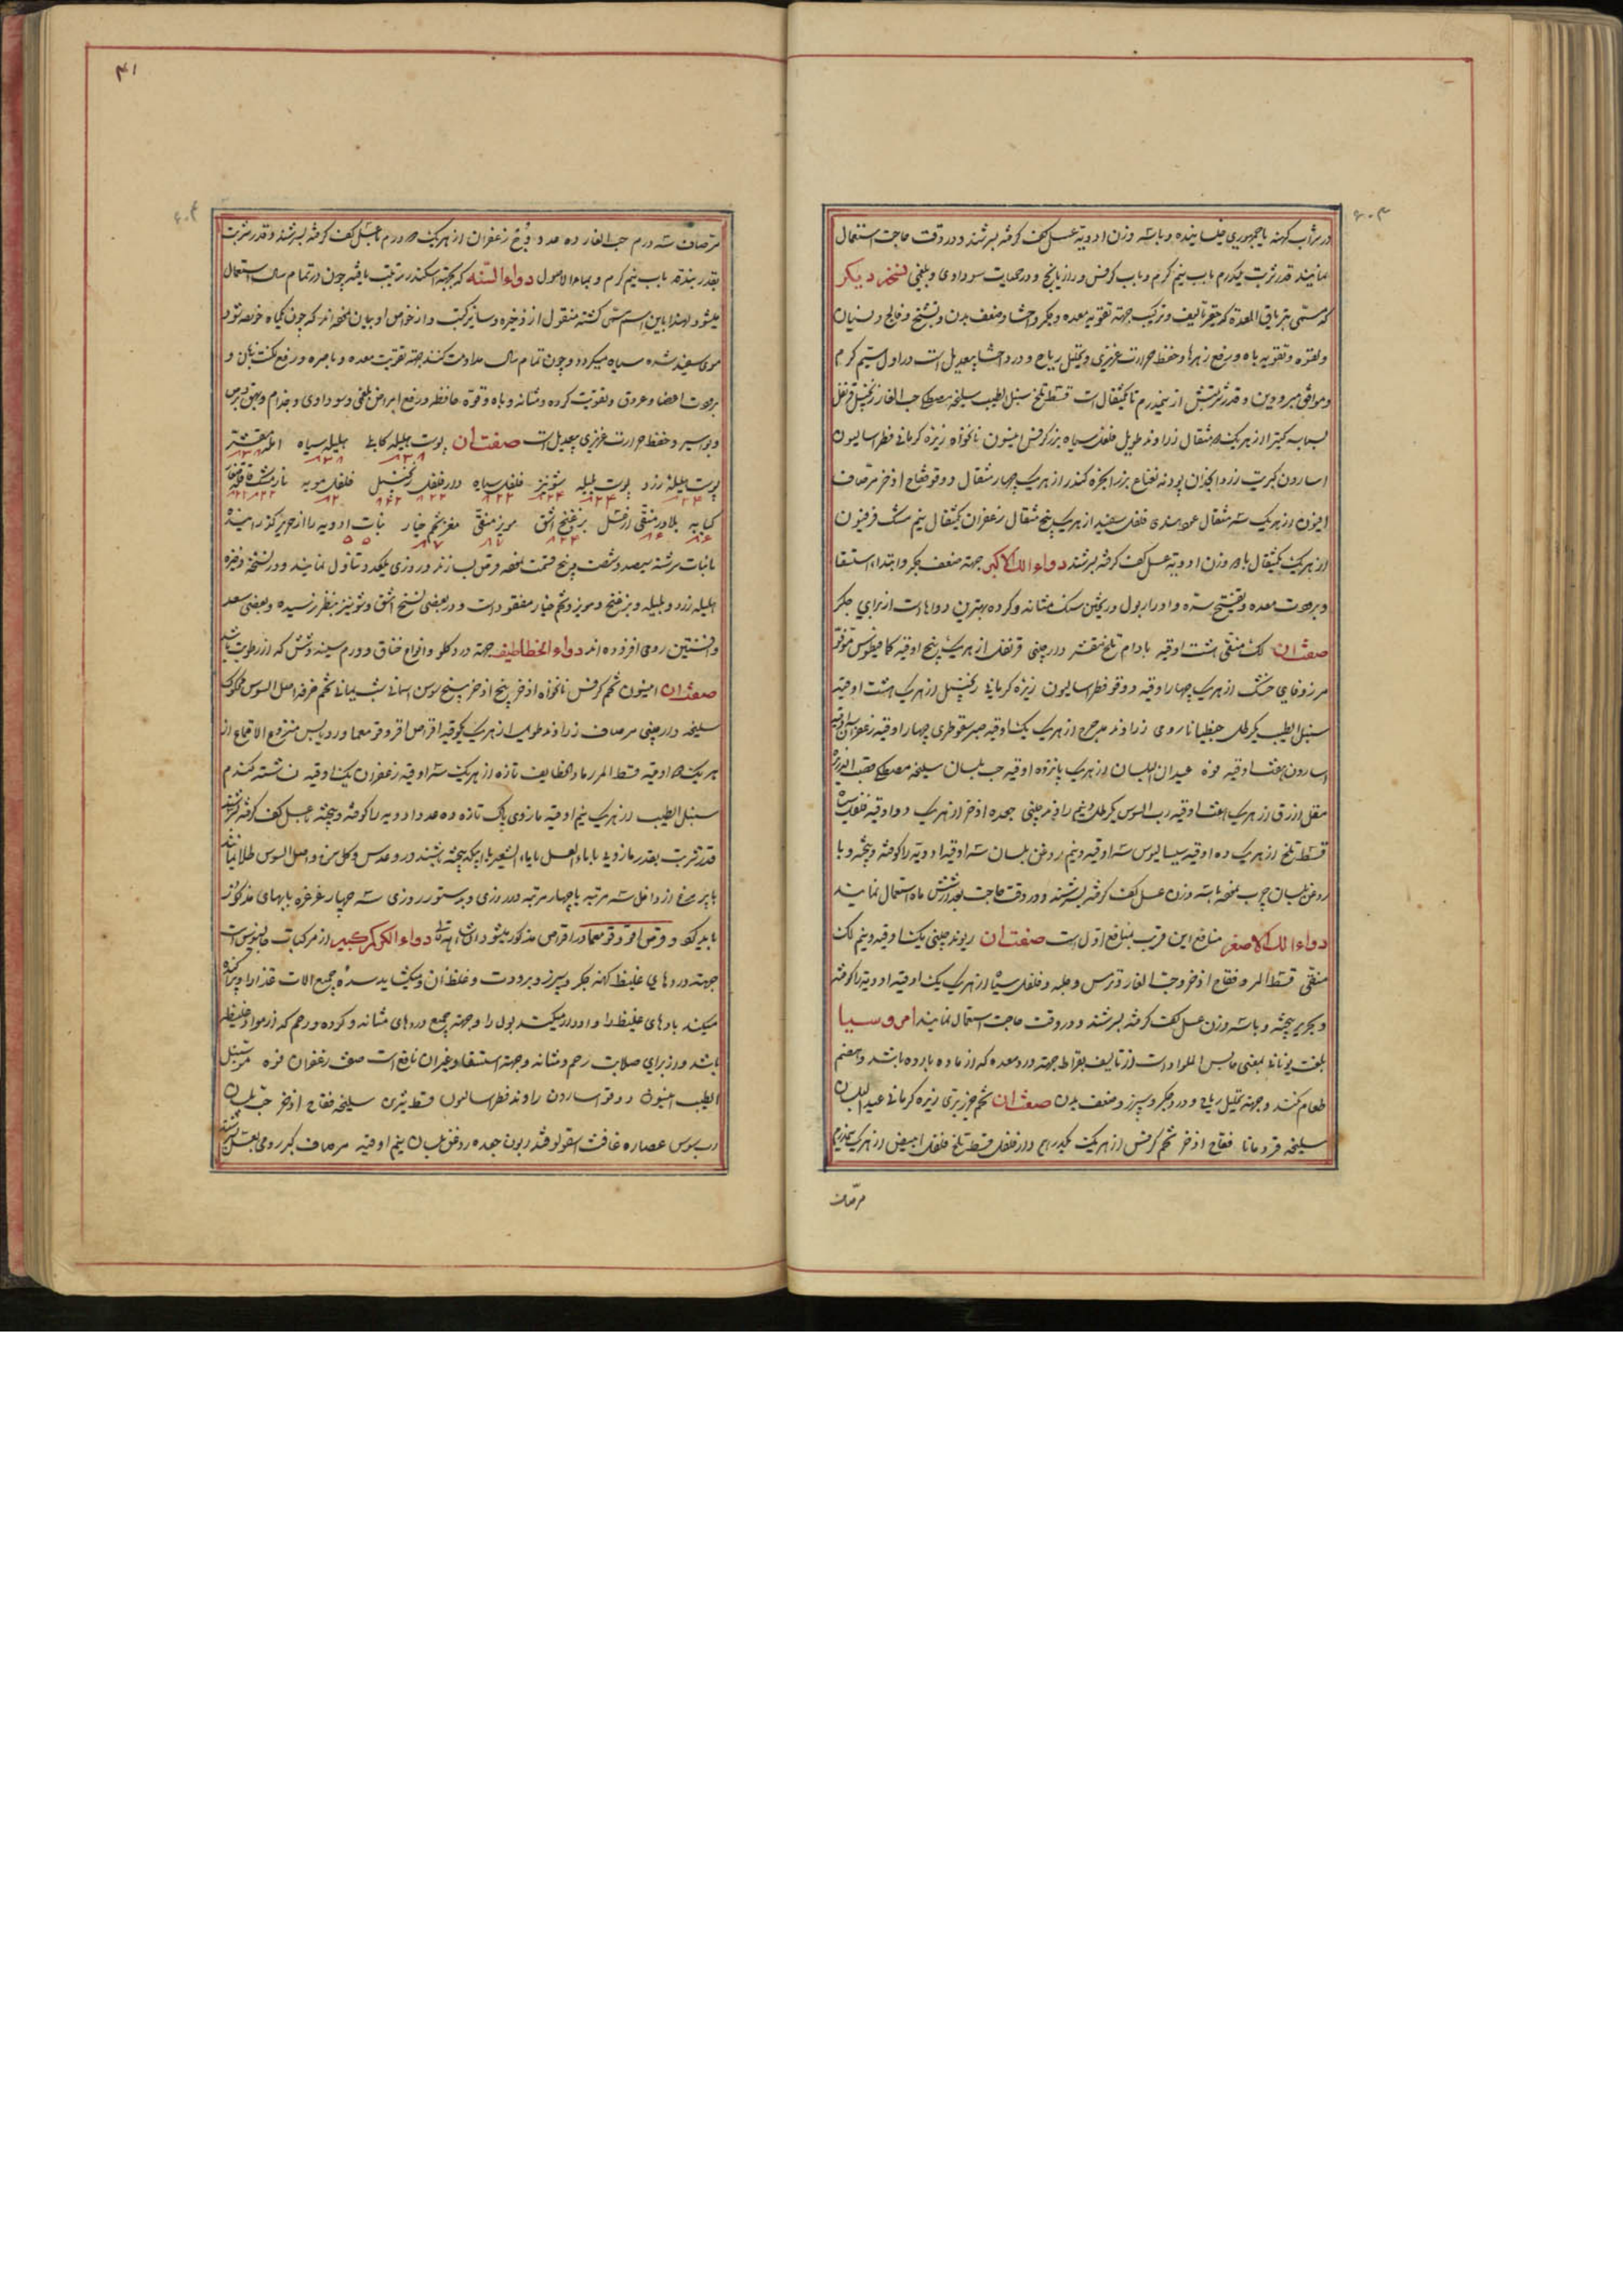 در شراب کهنه یا جمهوری خیسانیده و با سه وزن ادویه عسل کف گرفته بسرشند و در وقت حاجت استعمال
نمایند قدر شربت یکدرم با آب نیم گرم و با آب کرفس و رازیانج و در حمیات سوداوی و بلغمی نسخه دیگر
که مسمی بتریاق المعده که حقیر تالیف و ترکیب جهة تقویه معده و جگر و احشا و ضعف بدن و تشنج و فالج و نسیان
و لقوه و تقویه باه و رفع زهرها و حفظ حرارت غریزی و تحلیل ریاح و درد احشا بیعدیل است در اول سیم گرم
و موافق مبرودین و قدر شربتش از نیمدرم تا یکمثقال است قسط تلخ سنبل الطیب سلیخه مصطکی حب الغار زنجبیل قرنفل
بسباسه کتیرا از هر یک مثقال زراوند طویل فلفل سیاه بزر کرفس انیسون نانخواه زیره کرمانی فطراسالیون
اسارون کبریت زرد انجدان پودنه نعناع بزر انجره کندر از هر یک چهار مثقال دوقو فقاح اذخر مر صاف
افیون از هر یک سه مثقال عود هندی فلفل سفید از هر یک پنج مثقال زعفران یکمثقال نیم مشک فرفیون
از هر یک یکمثقال با وزن ادویه عسل کف گرفته بسرشند دواء اللک الاکبر جهة ضعف جگر و ابتداء استسقا
و برودت معده و تفتیح سده و ادرار بول و ریختن سنک مثانه و کرده بهترین دواهاست از برای جگر
صفت ان لک منقی هشت اوقیه بادام تلخ مقشر دارچینی قرنفل از هر یک پنج اوقیه کمافیطوس فوه
مر زوفای خشک از هر یک چهار اوقیه دوقو فطراسالیون زیره کرمانی زنجبیل از هر یک هشت اوقیه
سنبل الطیب یکرطل جنطیانا رومی زراوند مدحرج از هر یک یک اوقیه صبر سقوطری چهار اوقیه زعفران
اسارون هفت اوقیه فوه عیدان البلسان از هر یک پانزده اوقیه حب بلسان سلیخه مصطکی قصب الذریره
مقل ازرق از هر یک هفت اوقیه رب السوس یکرطل و نیم راوند چینی جعده اذخر از هر یک دو اوقیه فلفل سیاه
قسط تلخ از هر یک ده اوقیه سیسالیوس سه اوقیه و نیم روغن بلسان سه اوقیه ادویه را کوفته و بیخته و با
روغن بلسان چرب نموده با سه وزن عسل کف گرفته بسرشند و در وقت حاجت بعد از شش ماه استعمال نمایند
دواء اللک الاصغر منافع این قریب بمنافع اول است صفت ان ریوند چینی یک اوقیه و نیم لک
منقی قسط المر و فقاح اذخر و حب الغار و ترمس و حلبه و فلفل سیاه از هر یک یک اوقیه ادویه را کوفته
و بحریر بیخته و با سه وزن عسل کف گرفته بسرشند و در وقت حاجت استعمال نمایند امروسیا
بلغت یونانی بمعنی حابس المواد است از تالیف بقراط جهة درد معده که از ماده بارده باشد و هضم
طعام کند و جهة تحلیل ریاح و درد جگر و سپرز و ضعف بدن صفت ان تخم جزر بری زیره کرمانی عید البلسان
سلیخه قردمانا فقاح اذخر تخم کرفس از هر یک یکدرم دار فلفل قسط تلخ فلفل ابیض از هر یک نیمدرم
مر صاف
۴۱
مر صاف سه درم حب الغار ده عدد وج زعفران از هر یک درم با عسل کف گرفته بسرشند و قدر شربت
بقدر بندقه با آب نیم گرم و بماء الاصول دواء السنه که بجهة اسکندر ترتیب یافته چون در تمام سال استعمال
میشود لهذا باین اسم مسمی گشته منقول از ذخیره و سایر کتب و از خواص او بیان نموده‌اند که چون گیاه خورده شود
موی سفید شده سیاه میگردد و چون تمام سال مداومت کنند جهة تقویت معده و باصره و رفع لکنت زبان و
برودت اعضا و عروق و تقویت کرده و مثانه و باه و قوة حافظه و رفع امراض بلغمی و سوداوی و جذام و بهق و برص
و بواسیر و حفظ حرارت غریزی بیعدیل است صفت ان پوست هلیله کابلی هلیله سیاه امله مقشر
پوست هلیله زرد پوست بلیله شونیز فلفل سیاه دار فلفل زنجبیل فلفل مویه نارمشک
کبابه بلادر منقی بزر فنج اشق مویز منقی مغز تخم خیار نبات ادویه را از حریر گذرانیده
با نبات سرشته سیصد و شصت و پنج قسمت نموده قرص بسازند و روزی یکعدد تناول نمایند و در نسخه ذخیره
هلیله زرد و بلیله و بزر فنج و مویز و تخم خیار مفقود است و در بعضی نسخ اشق و شونیز بنظر نرسیده و بعضی سعد
و افسنتین رومی افزوده‌اند دواء الخطاطیف جهة درد گلو و انواع خناق و ورم سینه و شش که از رطوبت باشد
صفت ان انیسون تخم کرفس نانخواه اذخر بیخ اذخر بیخ سوسن اسمانی شب یمانی تخم خرفه اصل السوس محکوک
سلیخه دارچینی مر صاف زراوند طویل از هر یک یکوقیه اقراص اقروقومعما ورد یابس منزوع الاقماع از
هر یک اوقیه قسط المر رماد الخطاطیف تازه از هر یک سه اوقیه زعفران یک اوقیه نشاسته گندم
سنبل الطیب از هر یک نیم اوقیه مازوی پاک تازه ده عدد ادویه را کوفته و بیخته با عسل کف گرفته بسرشند
قدر شربت بقدر مازویه با ماء العسل یا ماء الشعیر یا بیکه پخته باشند در و عدس و کل سرخ و اصل السوس طلا نمایند
با پر مرغ از داخل سه مرتبه یا چهار مرتبه در روزی و بدستور روزی سه چهار غرغره بابهای مذکور
باید کرد و قرص اقروقومعما در اقراص مذکور میشود ان شاء الله تعالی دواء الکرکم کبیر از مرکبات جالینوس است
جهة دردهای غلیظ کهنه جگر و سپرز و برودت و غلظ ان و میگشاید سده جمیع الات غذا را و پراکنده
میکند بادهای غلیظ را و ادرار میکند بول را و جهة جمیع دردهای مثانه و کرده و رحم که از مواد غلیظه
باشد و از برای صلابت رحم و مثانه و جهة استسقا و غیر ان نافع است صفت زعفران فوه سنبل
الطیب انیسون دوقو اسارون راوند فطراسالیون قسط بشری سلیخه فقاح اذخر حب بلسان
رب سوس عصاره غافث اسقولوقندریون جعده روغن بلسان نیم اوقیه مر صاف